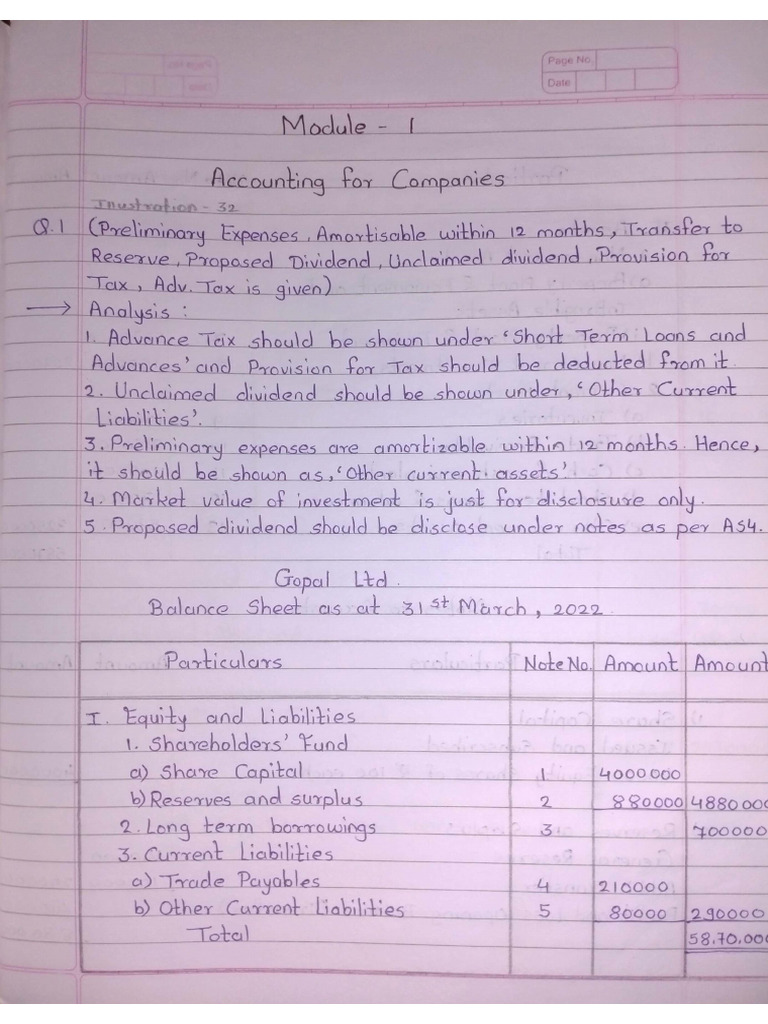 Page No.
Date
Module - 1
Accounting for Companies
Inustration - 32
Q.1 (Preliminary Expenses, Amortisable within 12 months, Transfer to
Reserve, Proposed Dividend, Unclaimed dividend, Provision for
Tax, Adv. Tax is given)
→ Analysis :
1. Advance Tax should be shown under 'Short Term Loans and
Advances' and Provision for Tax should be deducted from it.
2. Unclaimed dividend should be shown under, 'Other Current
Liabilities'.
3. Preliminary expenses are amortizable within 12 months. Hence,
it should be shown as, 'Other current assets'.
4. Market value of investment is just for disclosure only.
5. Proposed dividend should be disclose under notes as per AS4.
Gopal Ltd.
Balance Sheet as at 31st March, 2022.
Particulars Note No. Amount Amount
I. Equity and Liabilities
1. Shareholders' Fund
a) Share Capital 1 4000000
b) Reserves and surplus 2 880000 4880000
2. Long term borrowings 3 700000
3. Current Liabilities
a) Trade Payables 4 210000
b) Other Current Liabilities 5 80000 290000
Total 58,70,000